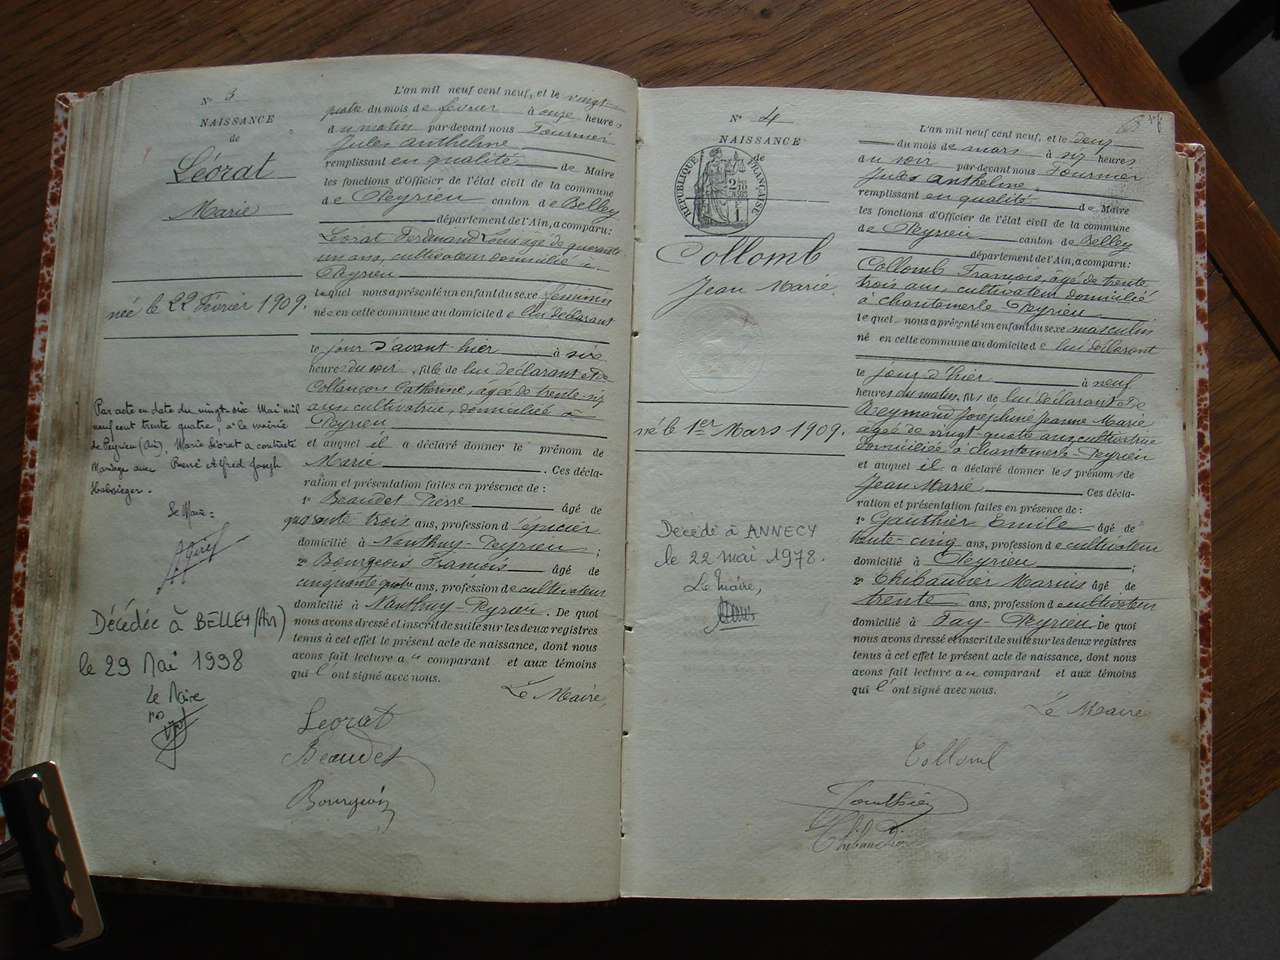 N° 3
NAISSANCE
de
Léorat
Marie
née le 22 Février 1909.
Par acte en date du vingt six Mai mil
neuf cent trente quatre, à la mairie
de Peyrieu (Ain), Marie Léorat a contracté
Mariage avec René Alfred Joseph
Le Maire:
Décédée à BELLEY (Ain)
le 29 Mai 1998
Le Maire
L'an mil neuf cent neuf, et le vingt
quatre du mois de février à onze heures
du matin par-devant nous Fournier
Jules Anthelme
remplissant en qualité de Maire
les fonctions d'Officier de l'état civil de la commune
de Peyrieu canton de Belley
département de l'Ain, a comparu:
Léorat Ferdinand Louis âgé de quarante
un ans, cultivateur domicilié à
Peyrieu
lequel nous a présenté un enfant du sexe féminin
née en cette commune au domicile de lui déclarant
le jour d'avant hier à six
heures du soir, fille de lui déclarant et de
Collançon Catherine, âgée de trente-six
ans, cultivatrice, domiciliée à
Peyrieu
et auquel il a déclaré donner le prénom de
Marie. Ces décla-
ration et présentation faites en présence de:
1° Beaudet Pierre âgé de
quarante trois ans, profession d'épicier
domicilié à Nanthuy-Peyrieu;
2° Bourgeois François âgé de
cinquante quatre ans, profession de cultivateur
domicilié à Nanthuy-Peyrieu. De quoi
nous avons dressé et inscrit de suite sur les deux registres
tenus à cet effet le présent acte de naissance, dont nous
avons fait lecture au comparant et aux témoins
qui l'ont signé avec nous.
Le Maire,
Léorat
Beaudet
Bourgeois
N° 4
NAISSANCE
de
RÉPUBLIQUE FRANÇAISE
Collomb
Jean Marie
né le 1er Mars 1909.
Décédé à ANNECY
le 22 mai 1978.
Le Maire,
L'an mil neuf cent neuf, et le deux
du mois de mars à six heures
du soir par-devant nous Fournier
Jules Anthelme
remplissant en qualité de Maire
les fonctions d'Officier de l'état civil de la commune
de Peyrieu canton de Belley
département de l'Ain, a comparu:
Collomb François, âgé de trente
trois ans, cultivateur domicilié
à Chantemerle Peyrieu
lequel nous a présenté un enfant du sexe masculin
né en cette commune au domicile de lui déclarant
le jour d'hier à neuf
heures du matin, fils de lui déclarant et de
Reymond Joséphine Jeanne Marie
âgée de vingt-quatre ans cultivatrice
domiciliée à Chantemerle-Peyrieu
et auquel il a déclaré donner les prénoms de
Jean Marie Ces décla-
ration et présentation faites en présence de:
1° Gauthier Emile âgé de
trente-cinq ans, profession de cultivateur
domicilié à Peyrieu;
2° Thibaudier Marius âgé de
trente ans, profession de cultivateur
domicilié à Fay-Peyrieu. De quoi
nous avons dressé et inscrit de suite sur les deux registres
tenus à cet effet le présent acte de naissance, dont nous
avons fait lecture au comparant et aux témoins
qui l'ont signé avec nous.
Le Maire
Collomb
Gauthier
Thibaudier